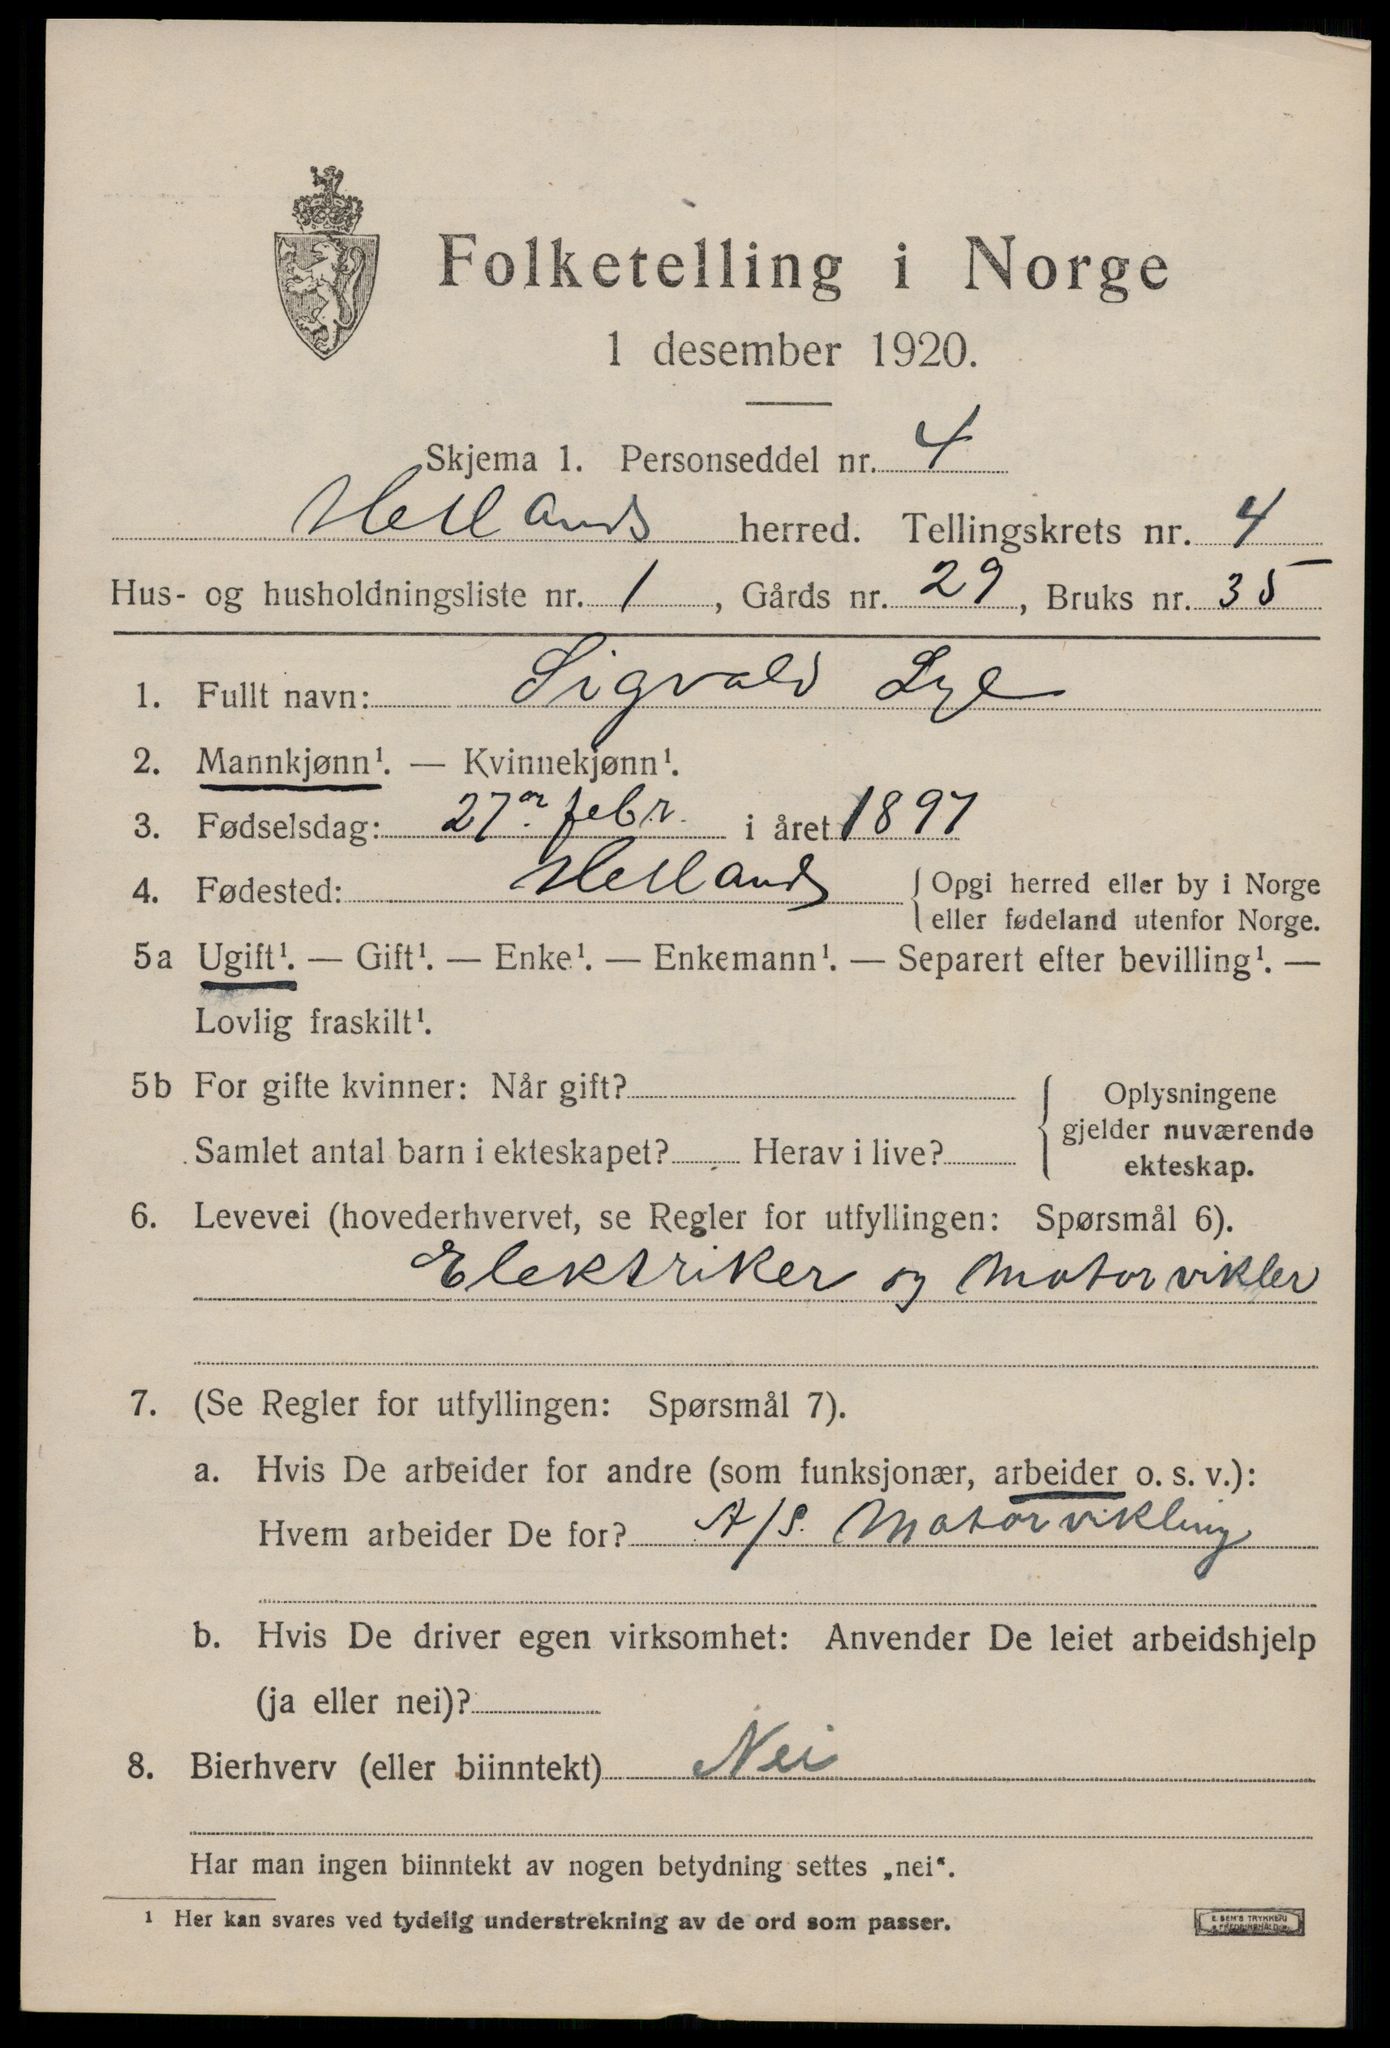 Folketelling i Norge
1 desember 1920.
Skjema 1. Personseddel nr. 4
Hetlands herred. Tellingskrets nr. 4
Hus- og husholdningsliste nr. 1, Gårds nr. 29, Bruks nr. 35
1. Fullt navn: Sigvald Lye
2. Mannkjønn¹. — Kvinnekjønn¹.
3. Fødselsdag: 27 febr. i året 1897
4. Fødested: Hetland { Opgi herred eller by i Norge
eller fødeland utenfor Norge.
5a Ugift¹. — Gift¹. — Enke¹. — Enkemann¹. — Separert efter bevilling¹. —
Lovlig fraskilt¹.
5b For gifte kvinner: Når gift? { Oplysningene
gjelder nuværende
Samlet antal barn i ekteskapet? Herav i live? ekteskap.
6. Levevei (hovederhvervet, se Regler for utfyllingen: Spørsmål 6).
Elektriker og Motorvikler
7. (Se Regler for utfyllingen: Spørsmål 7).
a. Hvis De arbeider for andre (som funksjonær, arbeider o. s. v.):
Hvem arbeider De for? A/S. Motorvikling
b. Hvis De driver egen virksomhet: Anvender De leiet arbeidshjelp
(ja eller nei)?
8. Bierhverv (eller biinntekt) Nei
Har man ingen biinntekt av nogen betydning settes „nei“.
¹ Her kan svares ved tydelig understrekning av de ord som passer.